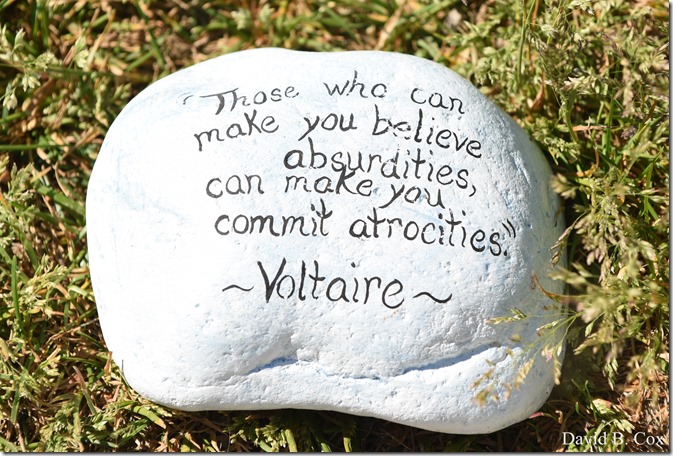 "Those who can
make you believe
absurdities,
can make you
commit atrocities."
~Voltaire~
David B. Cox